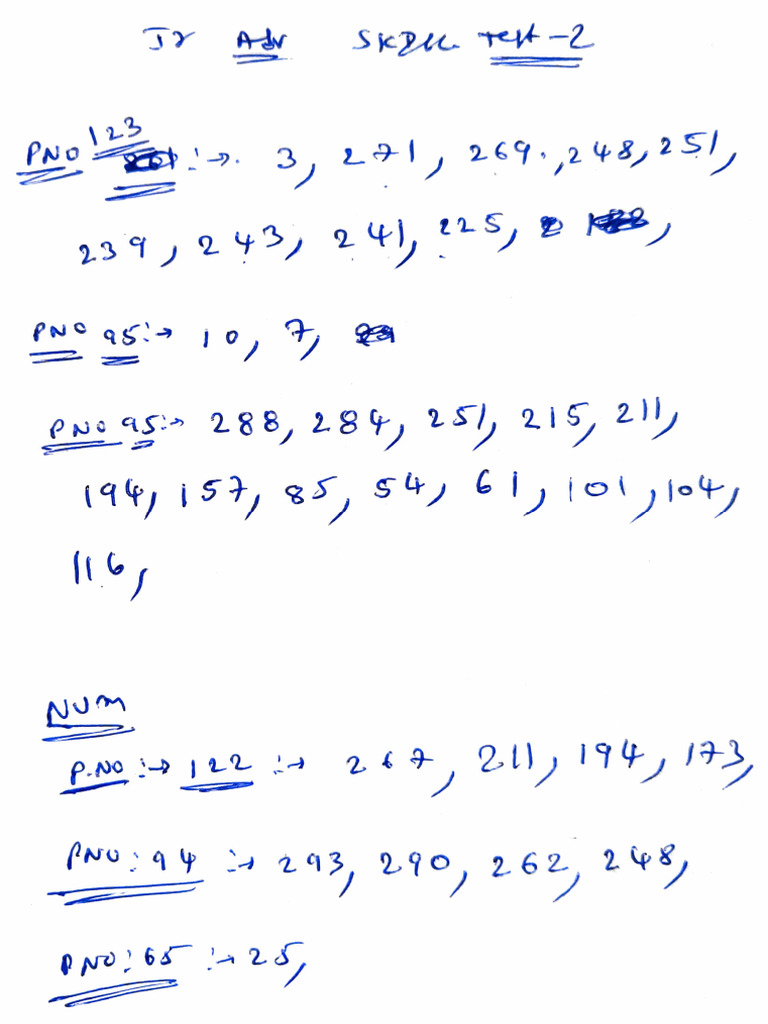 Jr Adv Test-2
PNO 123 :→ 3, 271, 269, 248, 251,
239, 243, 241, 225,
PNO 95:→ 10, 7,
PNO 95:→ 288, 284, 251, 215, 211,
194, 157, 85, 54, 61, 101, 104,
116,
NUM
P.NO :→ 122 :→ 267, 211, 194, 173,
PNO: 94 :→ 293, 290, 262, 248,
PNO: 65 :→ 25,